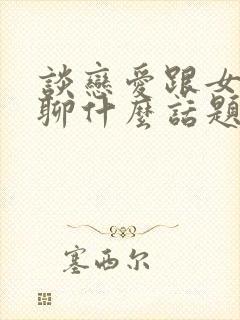 談戀愛跟女
聊什麼話題
塞西尔